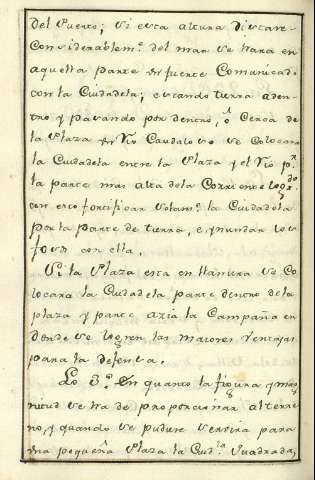 del Puerto; si esta altura distare
Considerablemte. del mar se hara en
aquella parte un fuerte Comunicado
con la Ciudadela; estando tierra aden-
tro y pasando por dentro, ô Cerca de
la Plaza un Rio Caudaloso se Colocara
la Ciudadela entre la Plaza y el Rio pr.
la parte mas alta dela Corriente
con esto fortifican solamte. la Ciudadela
por la parte de tierra, e ynundan los
fosos con ella.
Si la Plaza esta en llanura se Co-
locara la Ciudadela parte dentro dela
plaza y parte azia la Campaña en
donde se logren las maiores Ventajas
para la defensa.
Lo 3º. En quanto la figura y mag-
nitud se ha de proporcionar al terre-
no, y quando se pudiere servira para
una pequeña Plaza la Ciudla. Quadrada,